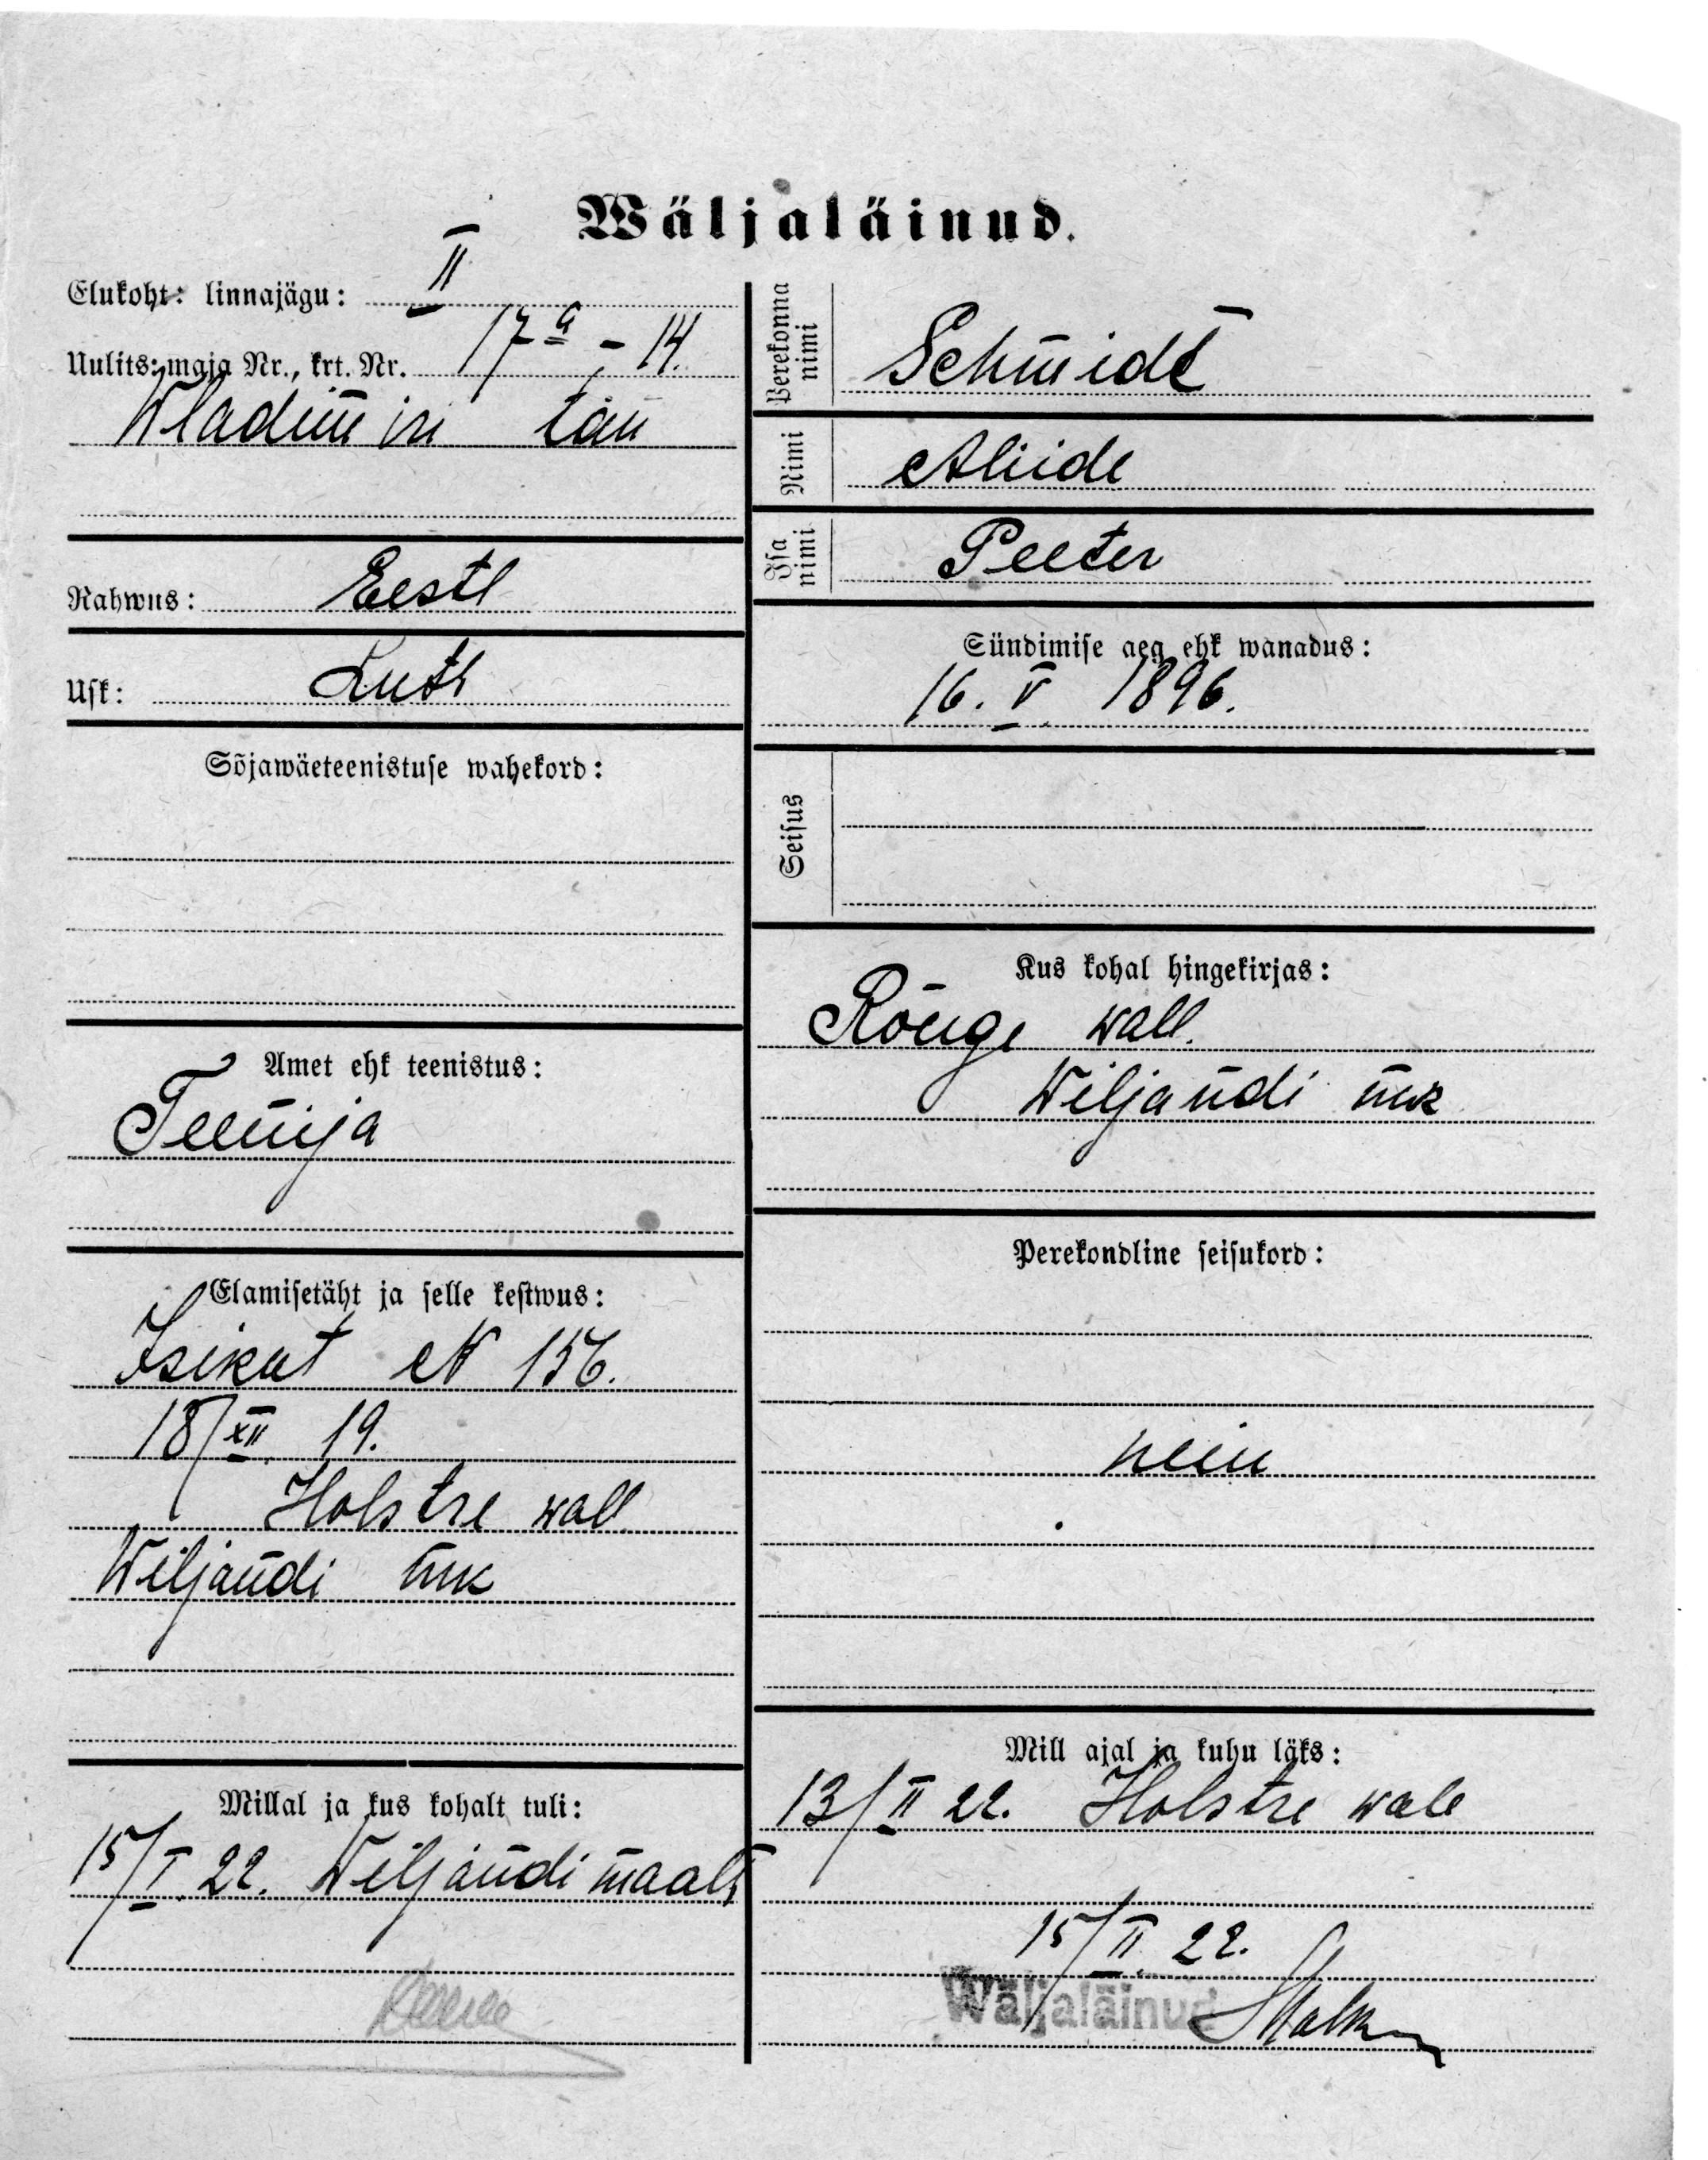 Wäljaläinud.
Elukoht: linnajägu: II
Uulits: maja Nr., krt. Nr. 17 a - 14.
Wladimiri tän
Rahwus: Eestl
Usk: Luth
Sõjawäeteenistuse wahekord:
Amet ehk teenistus:
Teenija
Elamisetäht ja selle kestwus:
Isikut № 156.
18/XII 19.
Holstre wall
Wiljandi mk
Millal ja kus kohalt tuli:
15/I 22. Wiljandi maalt
Perekonna nimi Schmidt
Nimi Aliide
Isa nimi Peeter
Sündimise aeg ehk wanadus:
16. V 1896.
Seisus
Kus kohal hingekirjas:
Rõuge wall.
Wiljandi mk
Perekondline seisukord:
neiu
Mill ajal ja kuhu läks:
13/II 22. Holstre wale
15/II 22.
Wäljaläinud